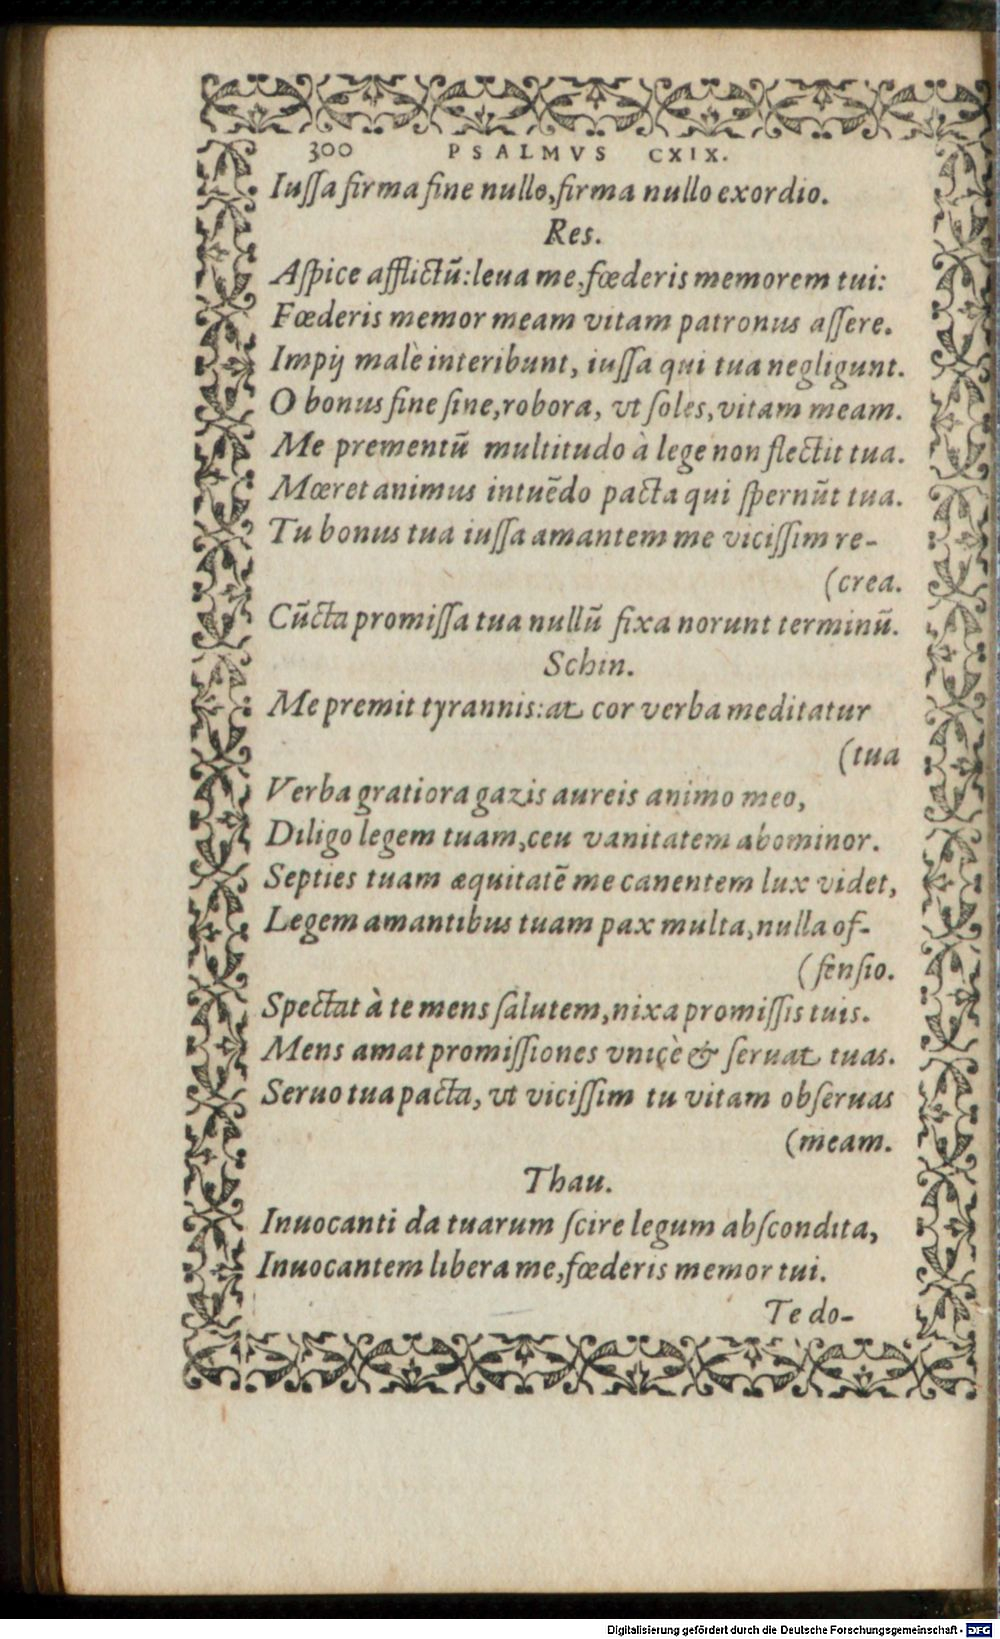 300 PSALMVS CXIX.
Iuſſa firma fine nullo, firma nullo exordio.
Res.
Aſpice afflictū: leua me, fœderis memorem tui:
Fœderis memor meam vitam patronus aſſere.
Impij malè interibunt, iuſſa qui tua negligunt.
O bonus fine ſine, robora, vt ſoles, vitam meam.
Me prementū multitudo à lege non flectit tua.
Mœret animus intuēdo pacta qui ſpernūt tua.
Tu bonus tua iuſſa amantem me viciſſim re-
(crea.
Cūcta promiſſa tua nullū fixa norunt terminū.
Schin.
Me premit tyrannis: at cor verba meditatur
(tua
Verba gratiora gazis aureis animo meo,
Diligo legem tuam, ceu vanitatem abominor.
Septies tuam æquitatē me canentem lux videt,
Legem amantibus tuam pax multa, nulla of-
(fenſio.
Spectat à te mens ſalutem, nixa promiſſis tuis.
Mens amat promiſſiones vnicè & ſeruat tuas.
Seruo tua pacta, vt viciſſim tu vitam obſeruas
(meam.
Thau.
Inuocanti da tuarum ſcire legum abſcondita,
Inuocantem libera me, fœderis memor tui.
Te do-
Digitalisierung gefördert durch die Deutsche Forschungsgemeinschaft - DFG